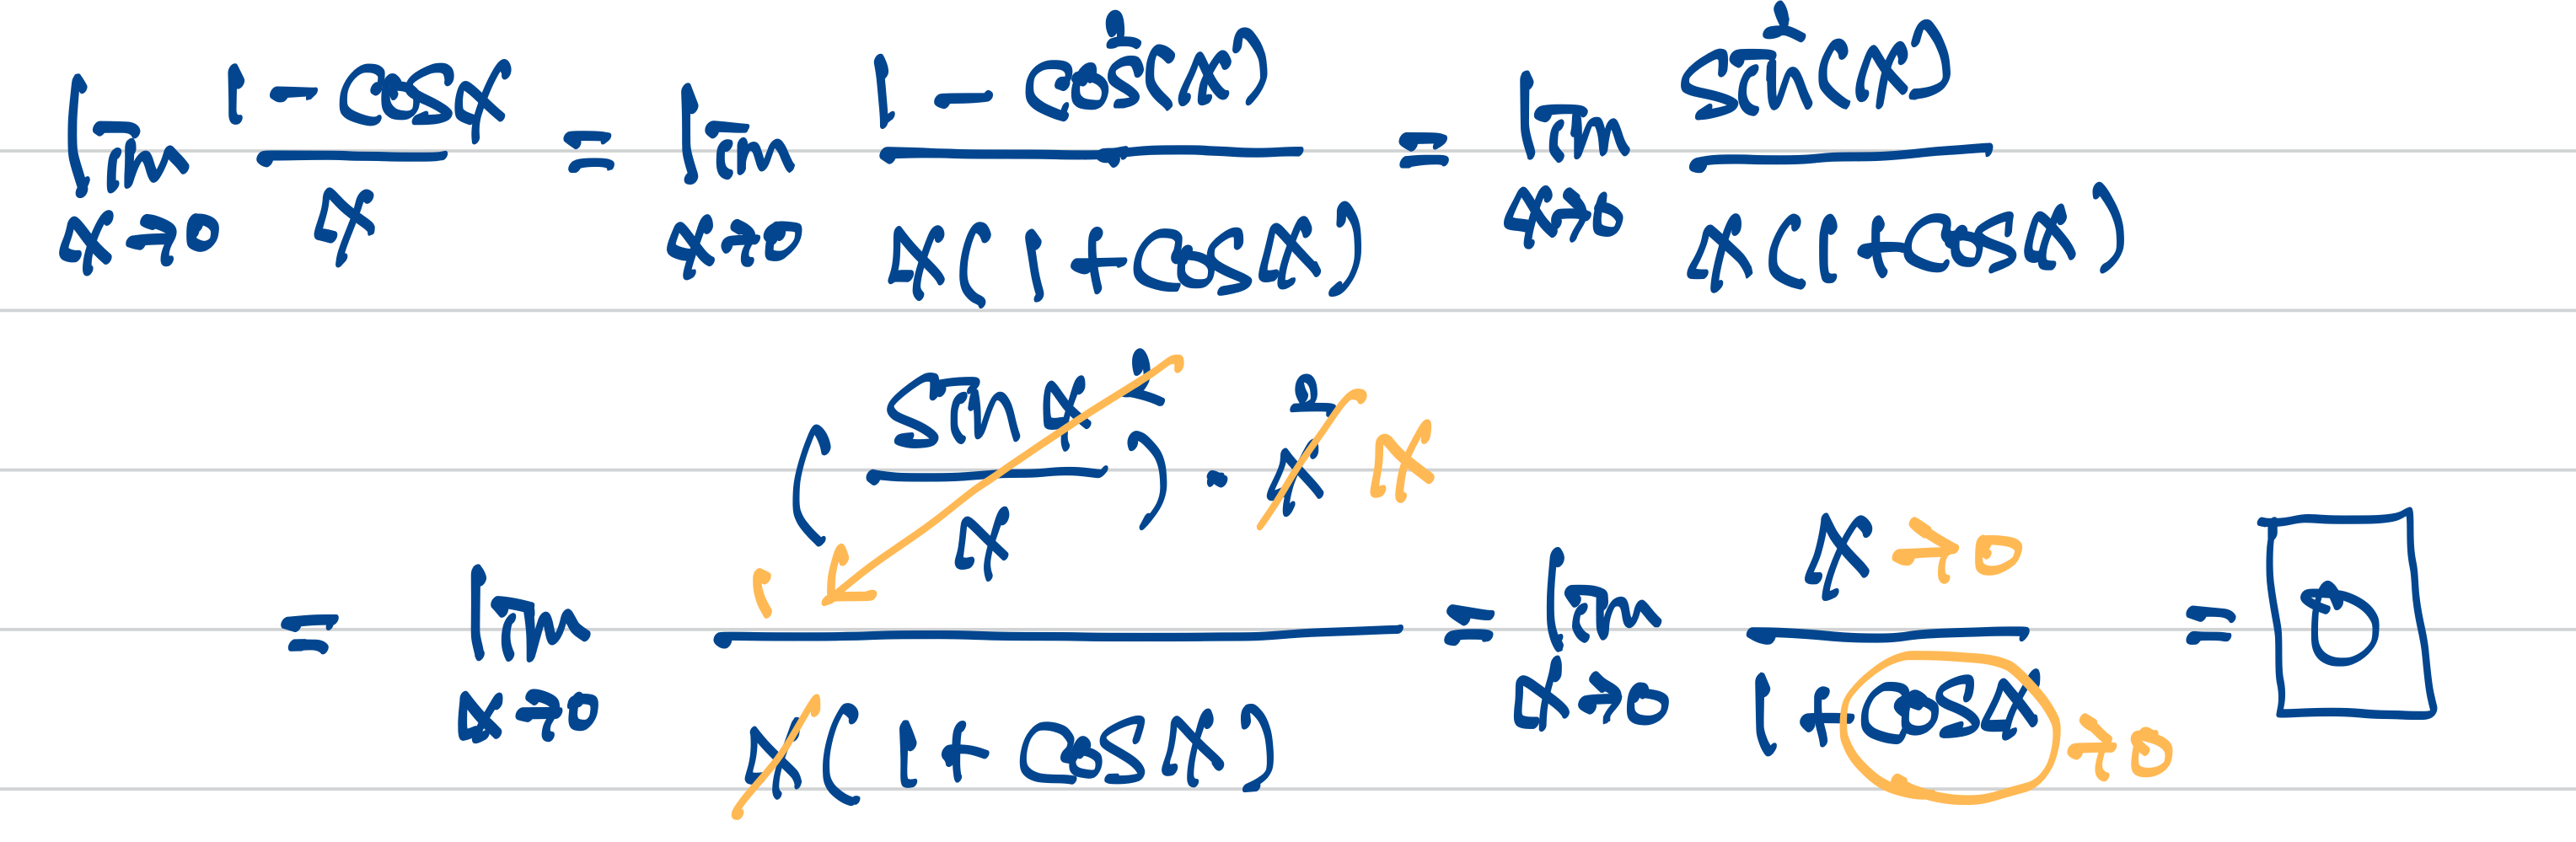 lim x→0 (1 - cos x)/x = lim x→0 (1 - cos²(x))/(x(1 + cos x)) = lim x→0 sin²(x)/(x(1 + cos x))
= lim x→0 ((sin x/x)² · x² x 1)/(x(1 + cos x)) = lim x→0 (x →0)/(1 + cos x →0) = 0